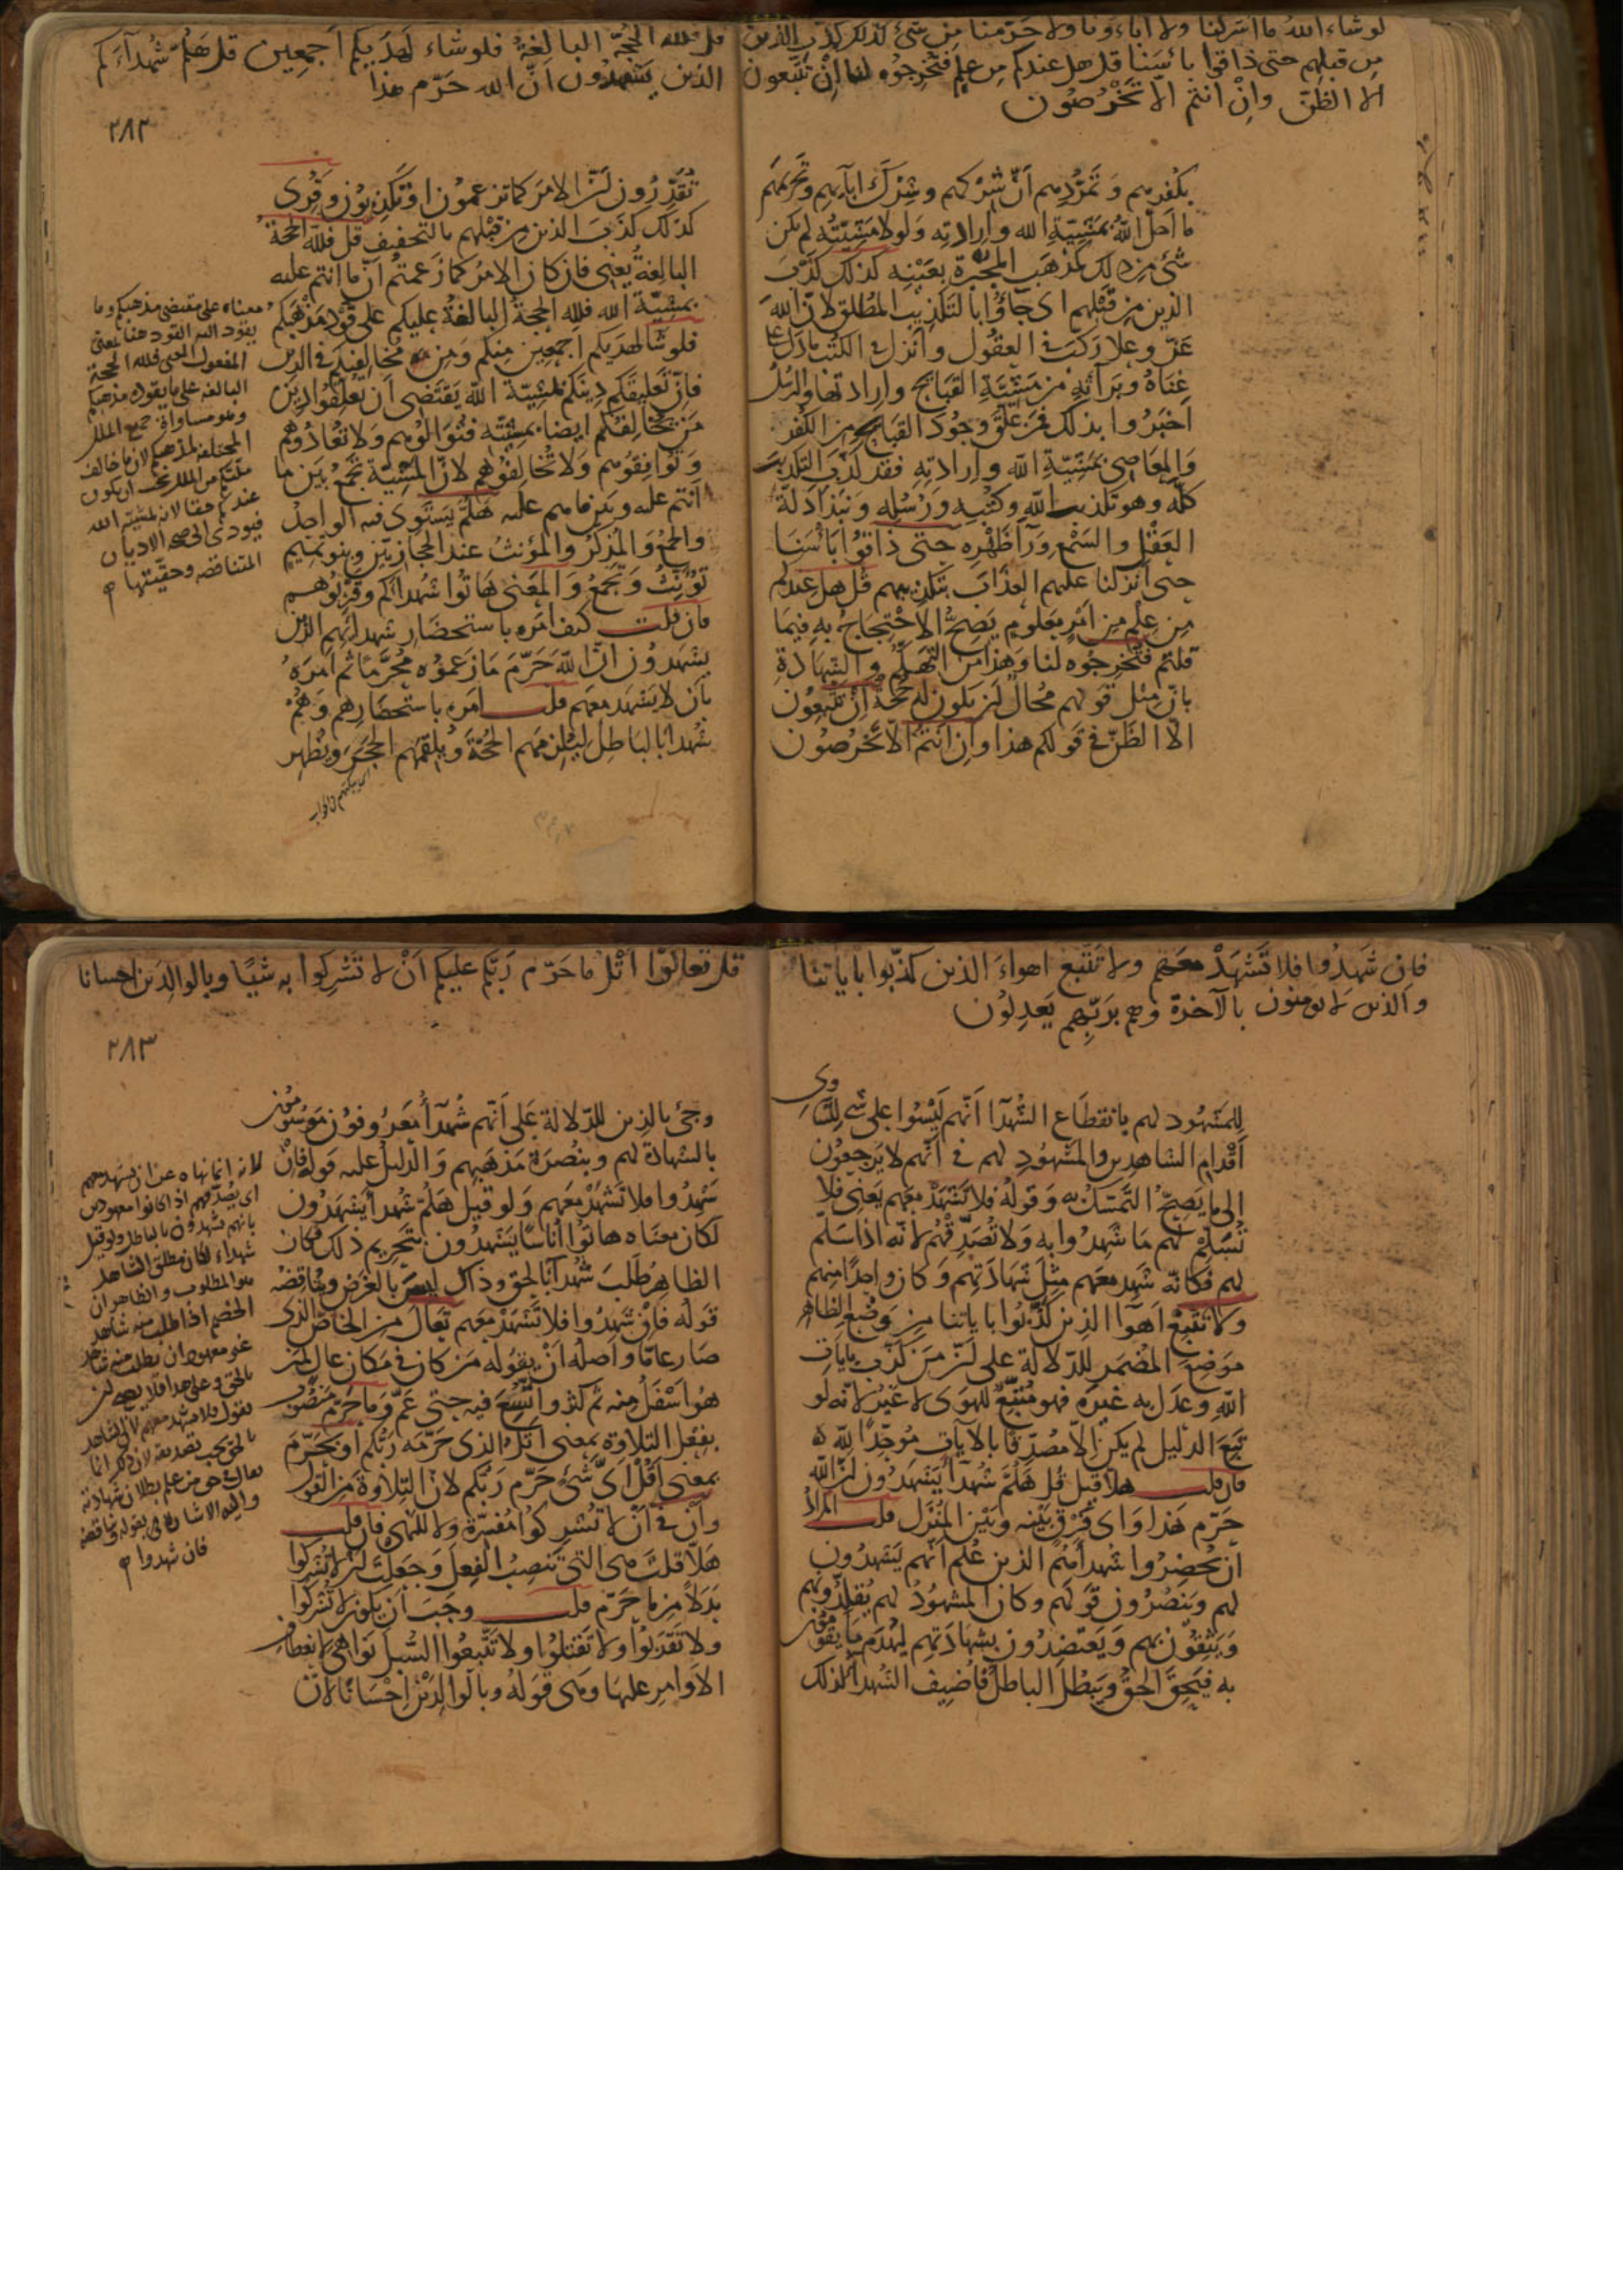 لو شاء الله ما اشركنا ولا اباءونا ولا حرمنا من شئ كذلك كذب الذين
من قبلهم حتى ذاقوا بأسنا قل هل عندكم من علم فتخرجوه لنا إن تتبعون
الا الظن وإن انتم الا تخرصون
بكفرهم وتمردهم أن شركهم وشرك ابآيهم وتحريمهم
ما احل الله بمشيّة الله وارادته ولولا مشيّته لم يكن
شئ من ذلك كمذهب المجبرة بعينه كذلك كذّب
الذين من قبلهم اى جاؤا بالتكذيب المطلق لان الله
عزّ وعلا ركب فى العقول وانزل فى الكتب ما دل على
غناه وبرآته من مشيّة القبايح وارادتها والرسل
اخبروا بذلك فمن علّق وجود القبايح من الكفر
والمعاصى بمشيّة الله وارادته فقد كذب التكذيب
كله وهو تكذيب الله وكتبه ورسله ونبذ ادلة
العقل والسمع ورآ ظهره حتى ذاقوا بأسنا
حتى انزلنا عليهم العذاب بتكذيبهم قل هل عندكم
من علم من امر معلوم يصح الاحتجاج به فيما
قلتم فتخرجوه لنا وهذا من التهكم والشهادة
بان مثل قولهم محال لن يكون له حجة ان تتبعون
الا الظن فى قولكم هذا وان انتم الا تخرصون
قل فلله الحجة البالغة فلو شاء لهديكم اجمعين قل هلم شهدآءكم
الذين يشهدون ان الله حرّم هذا
٢٨٢
تقدّرون لنّ الامر كما تزعمون او تكذبون وقرى
كذلك كذب الذين من قبلهم بالتخفيف قل فلله الحجة
البالغة يعنى فان كان الامر كما زعمتم ان ما انتم عليه
بمشيّة الله فلله الحجة البالغة عليكم على قود مذهبكم
فلو شا لهديكم اجمعين منكم ومن مخالفيكم فى الدين
فانّ تعليقكم دينكم بمشيّة الله يقتضى ان تعلقوا دين
من يخالفكم ايضا بمشيّته فتوالوهم ولا تعادوهم
وتوافقوهم ولا تخالفوهم لانّ المشيّة تجمع بين ما
انتم عليه وبين ما هم عليه هلمّ يستوى فيه الواحد
والجمع والمذكر والمؤنث عند الحجازيين وبنو تميم
تؤنث وتجمع والمعنى هاتوا شهداكم وقربوهم
فان قلت كيف امره باستحضار شهدائهم الذين
يشهدون انّ الله حرّم ما زعموه محرّما ثم امره
بان لا يشهد معهم قلت امره باستحضارهم وهم
شهدا بالباطل ليلزمهم الحجة ويلقمهم الحجر ويظهر
معناه على مقتضى مذهبكم وما
يقود اليه القود هنا بمعنى
المفعول المعنى فلله الحجة
البالغة على ما يقوده مذهبكم
وهو مساواة جميع الملل
المختلفة لمذهبكم لان ما خالف
ملتكم من الملل يجب ان يكون
عندكم حقا لانه بمشية الله
فيودى الى صحة الاديان
المتناقضة وحقيتها
فان شهدوا فلا تشهد معهم ولا تتبع اهواء الذين كذّبوا باياتنا
والذين لا يومنون بالآخرة وهم بربّهم يعدلون
للمشهود لهم بانقطاع الشهدا انهم ليسوا على شى لتساوى
اقدام الشاهدين والمشهود لهم فى انهم لا يرجعون
الى ما يصحّ التمسك به وقوله فلا تشهد معهم يعنى فلا
تسلم لهم ما شهدوا به ولا تصدّقهم لانه اذا سلّم
لهم فكانه شهد معهم مثل شهادتهم وكان واحدا منهم
ولا تتبع اهوآ الذين كذّبوا باياتنا من وضع الظاهر
موضع المضمر للدلالة على لنّ من كذّب بايات
الله وعدل به غيره فهو متّبع للهوى لا غير لانه لو
تبع الدليل لم يكن الا مصدّقا بالآيات موحّدا لله
فان قلت هلا قيل قل هلمّ شهدآ يشهدون لنّ الله
حرّم هذا واى فرق بينه وبين المنزل قلت المراد
ان يحضروا شهدآهم الذين علم انهم يشهدون
لهم وينصرون قولهم وكان المشهود لهم يقلّدونهم
ويثقون بهم ويعتضدون بشهادتهم ليهدم ما يقومون
به فيحقّ الحقّ ويبطل الباطل فاضيف الشهدآ لذلك
قل تعالوا اتل ما حرّم ربكم عليكم ان لا تشركوا به شيئا وبالوالدين احسانا
٢٨٣
وجئ بالذين للدلالة على انهم شهدآ معروفون موسومون
بالشهادة لهم وبنصرة مذهبهم والدليل عليه قوله فان
شهدوا فلا تشهد معهم ولو قيل هلم شهدا يشهدون
لكان معناه هاتوا اناسا يشهدون بتحريم ذلك فكان
الظاهر طلب شهدآ بالحق وذاك ليس بالغرض ويناقضه
قوله فان شهدوا فلا تشهد معهم تعال من الخاص الذى
صار عامّا واصله ان يقوله من كان فى مكان عال لمن
هو اسفل منه ثم كثر واتسع فيه حتى عمّ وما حرم منصوب
بفعل التلاوة بمعنى اتل الذى حرّمه ربكم او بحرّم
بمعنى اقل اىّ شئ حرّم ربكم لان التلاوة من القول
وأن فى أن لا تشركوا مفسّرة ولا للنهى فان قلت
هلا قلت هى التى تنصب الفعل وجعلت لن لا تشركوا
بدلا من ما حرّم قلت وجب ان يكون لا تشركوا
ولا تقربوا ولا تقتلوا ولا تتبعوا السبل نواهى لانعطاف
الاوامر عليها وهى قوله وبالوالدين احسانا لان
لانه انما نهاه عن ان يشهد معهم
اى يصدقهم اذا كانوا معهودين
بانهم يشهدون بالباطل ولو قيل
شهداء لكان مطلق الشاهد
هو المطلوب والظاهر ان
الخصم اذا طلب منه شاهد
غير معهود ان يطلب منه شاهد
بالحق وعلى هذا فلا يصح لن
يقول فلا تشهد معهم لان الشاهد
بالحق يجب تصديقه
واليه الاشارة بقوله ويناقضه
فان شهدوا